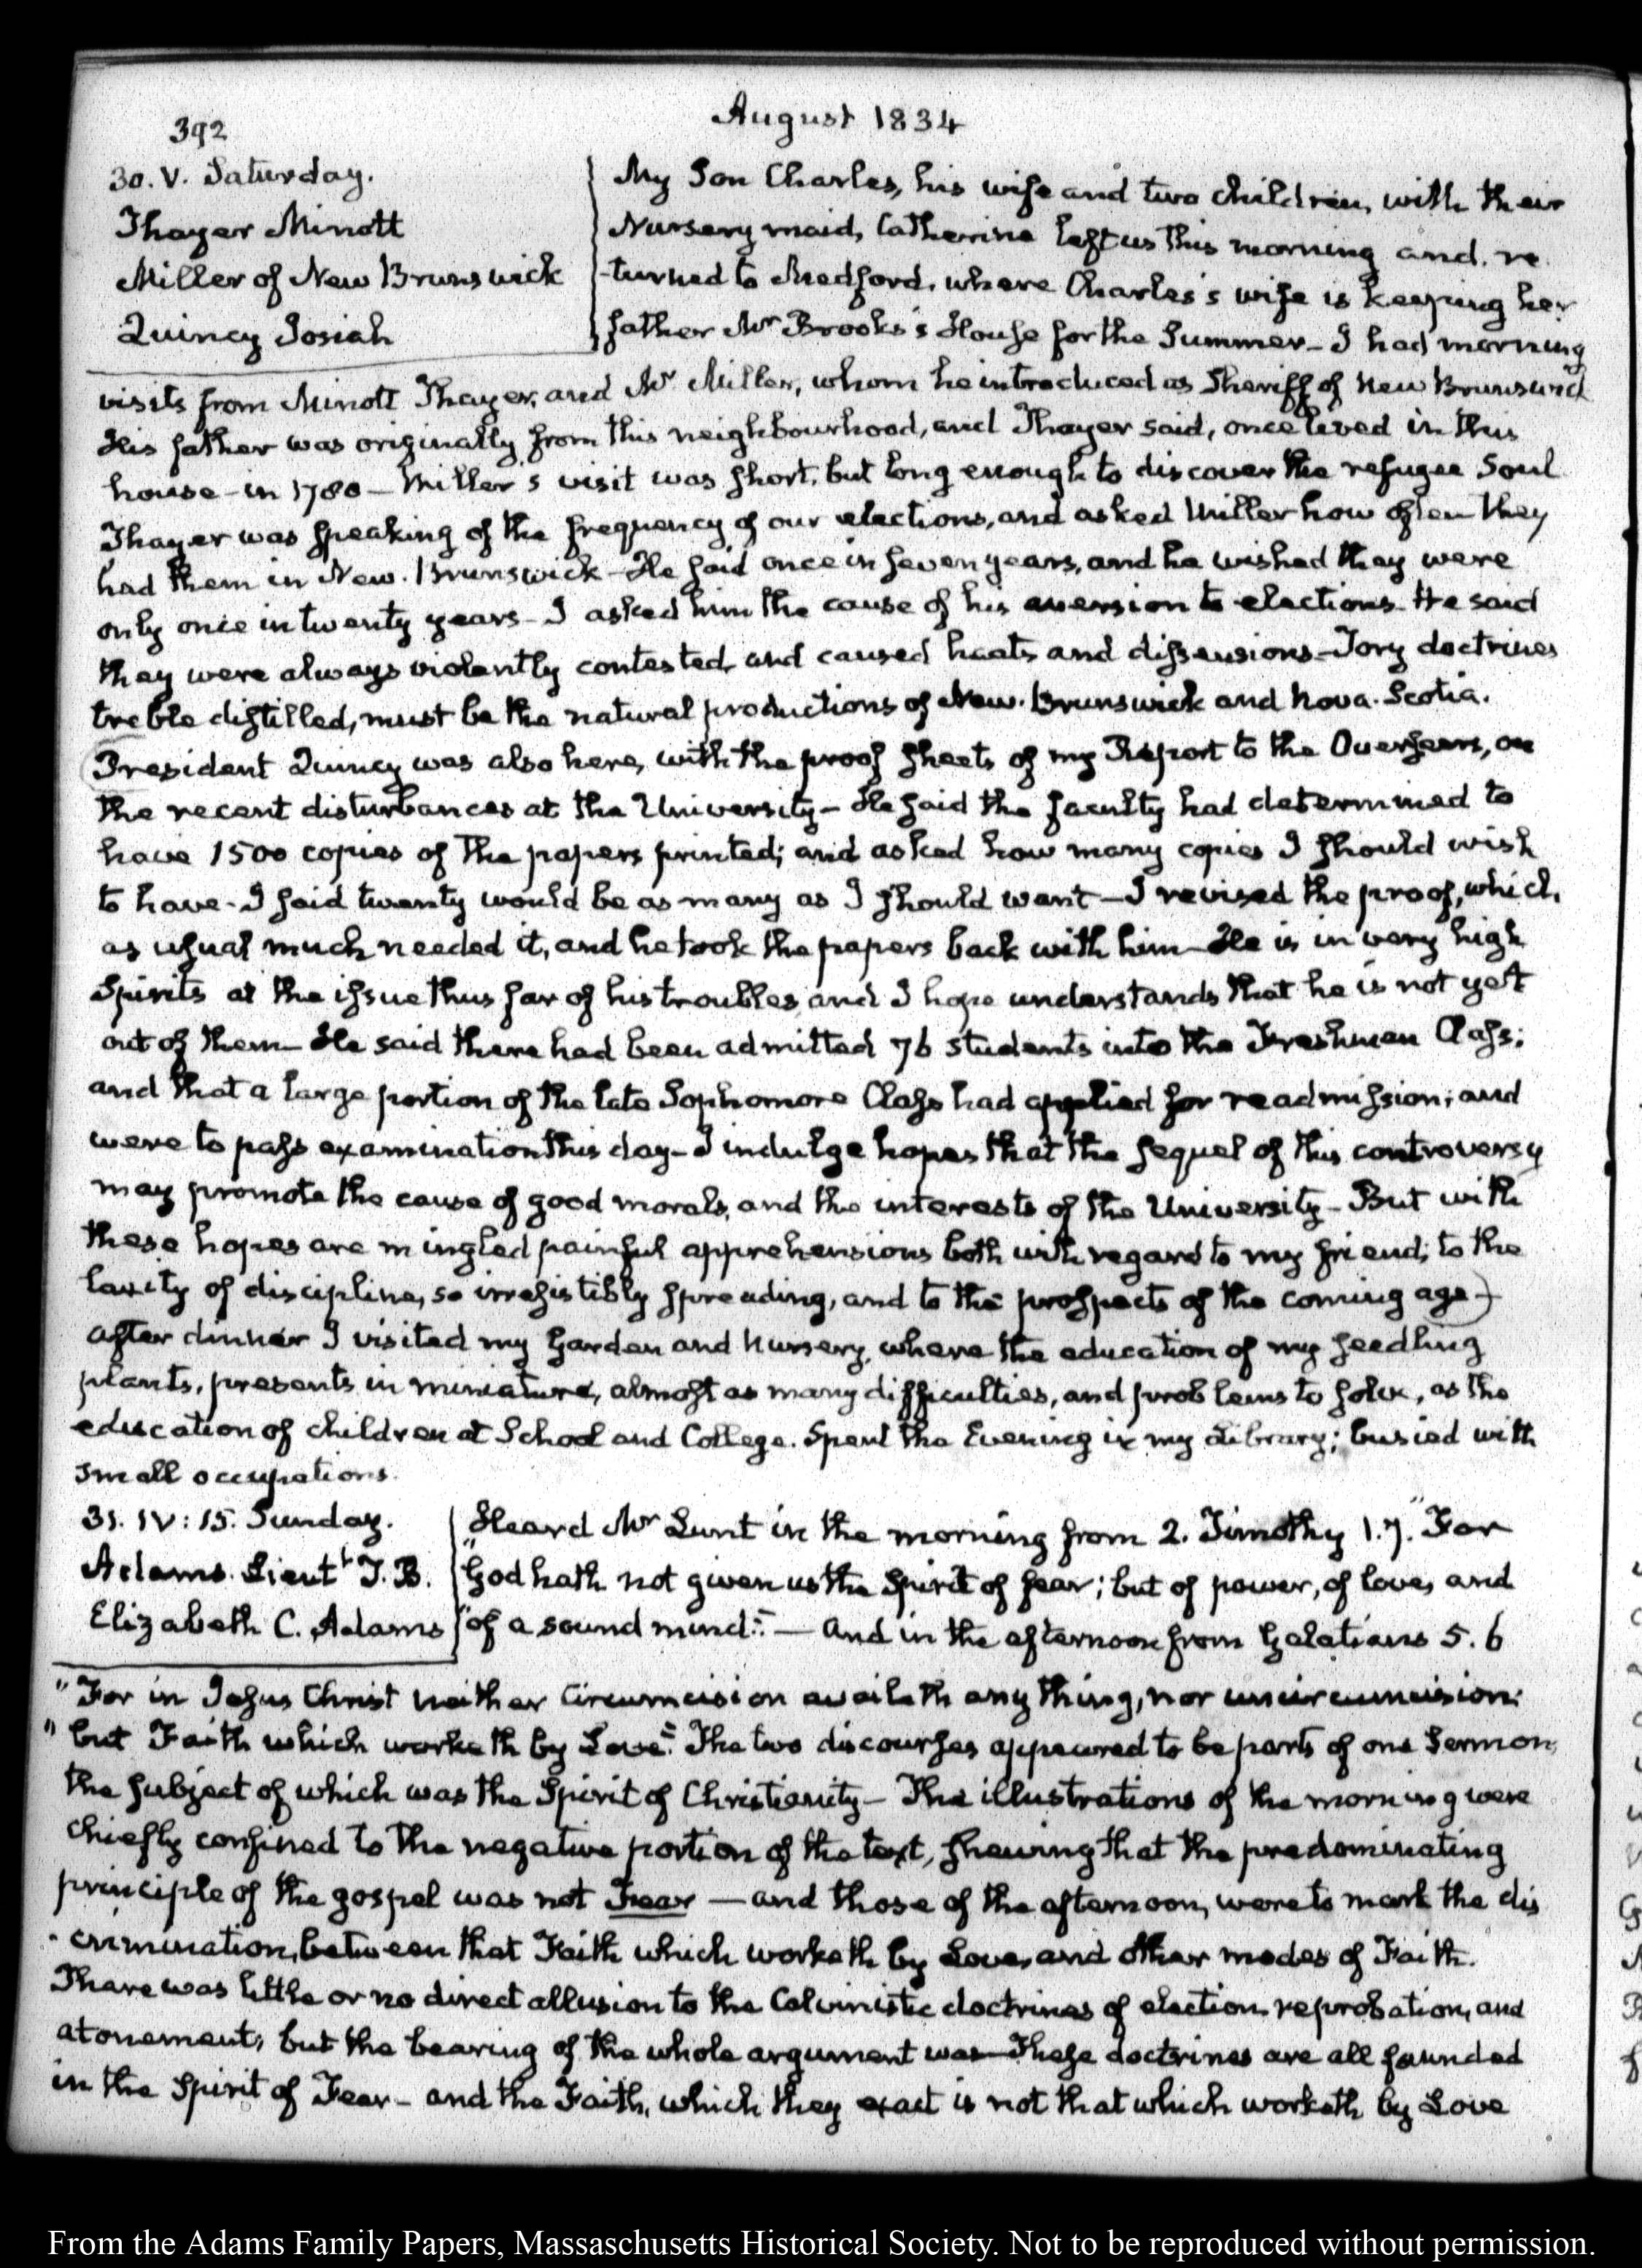 392
August 1834
30. V. Saturday.
Thayer Minott
Miller of New Brunswick
Quincy Josiah
My Son Charles, his wife and two children, with their
Nursery maid, Catherine left us this morning and re
-turned to Medford, where Charles's wife is keeping her
father Mr Brooks's House for the Summer - I had morning
visits from Minott Thayer, and Mr Miller, whom he introduced as Sheriff of New Brunswick
His father was originally from this neighbourhood, and Thayer said, once lived in this
house - in 1780 - Miller's visit was short, but long enough to discover the refugee Soul
Thayer was speaking of the frequency of our elections, and asked Miller how often they
had them in New-Brunswick - He said once in seven years, and he wished they were
only once in twenty years - I asked him the cause of his aversion to elections - He said
they were always violently contested and caused heats and dissensions - Tory doctrines
treble distilled, must be the natural productions of New-Brunswick and Nova-Scotia.
(President Quincy was also here, with the proof sheets of my Report to the Overseers, on
the recent disturbances at the University - He said the faculty had determined to
have 1500 copies of the papers printed; and asked how many copies I should wish
to have - I said twenty would be as many as I should want - I revised the proof, which,
as usual much needed it, and he took the papers back with him - He is in very high
Spirits at the issue thus far of his troubles, and I hope understands that he is not yet
out of them - He said there had been admitted 76 students into the Freshman Class;
and that a large portion of the late Sophomore Class had applied for readmission; and
were to pass examination this day - I indulge hopes that the sequel of this controversy
may promote the cause of good morals, and the interests of the University - But with
these hopes are mingled painful apprehensions both with regard to my friend; to the
laxity of discipline, so irresistibly spreading, and to the prospects of the coming age -)
After dinner I visited my Garden and Nursery, where the education of my seedling
plants, presents in miniature, almost as many difficulties, and problems to solve, as the
education of children at School and College. Spent the Evening in my Library; busied with
small occupations.
31. IV:15. Sunday.
Adams. Lieutt T. B.
Elizabeth C. Adams
Heard Mr Lunt in the morning from 2. Timothy 1.7. "For
"God hath not given us the Spirit of fear; but of power, of love, and
"of a sound mind:" - And in the afternoon from Galatians 5. 6
"For in Jesus Christ neither Circumcision availeth any thing, nor uncircumcision;
"but Faith which worketh by Love." The two discourses appeared to be parts of one Sermon,
the subject of which was the Spirit of Christianity - The illustrations of the morning were
chiefly confined to the negative portion of the text, shewing that the predominating
principle of the gospel was not Fear - and those of the afternoon, were to mark the dis
-crimination, between that Faith which worketh by Love, and other modes of Faith.
There was little or no direct allusion to the Calvinistic doctrines of election, reprobation, and
atonement, but the bearing of the whole argument was - These doctrines are all founded
in the Spirit of Fear - and the Faith, which they exact is not that which worketh by Love
From the Adams Family Papers, Massachusetts Historical Society. Not to be reproduced without permission.